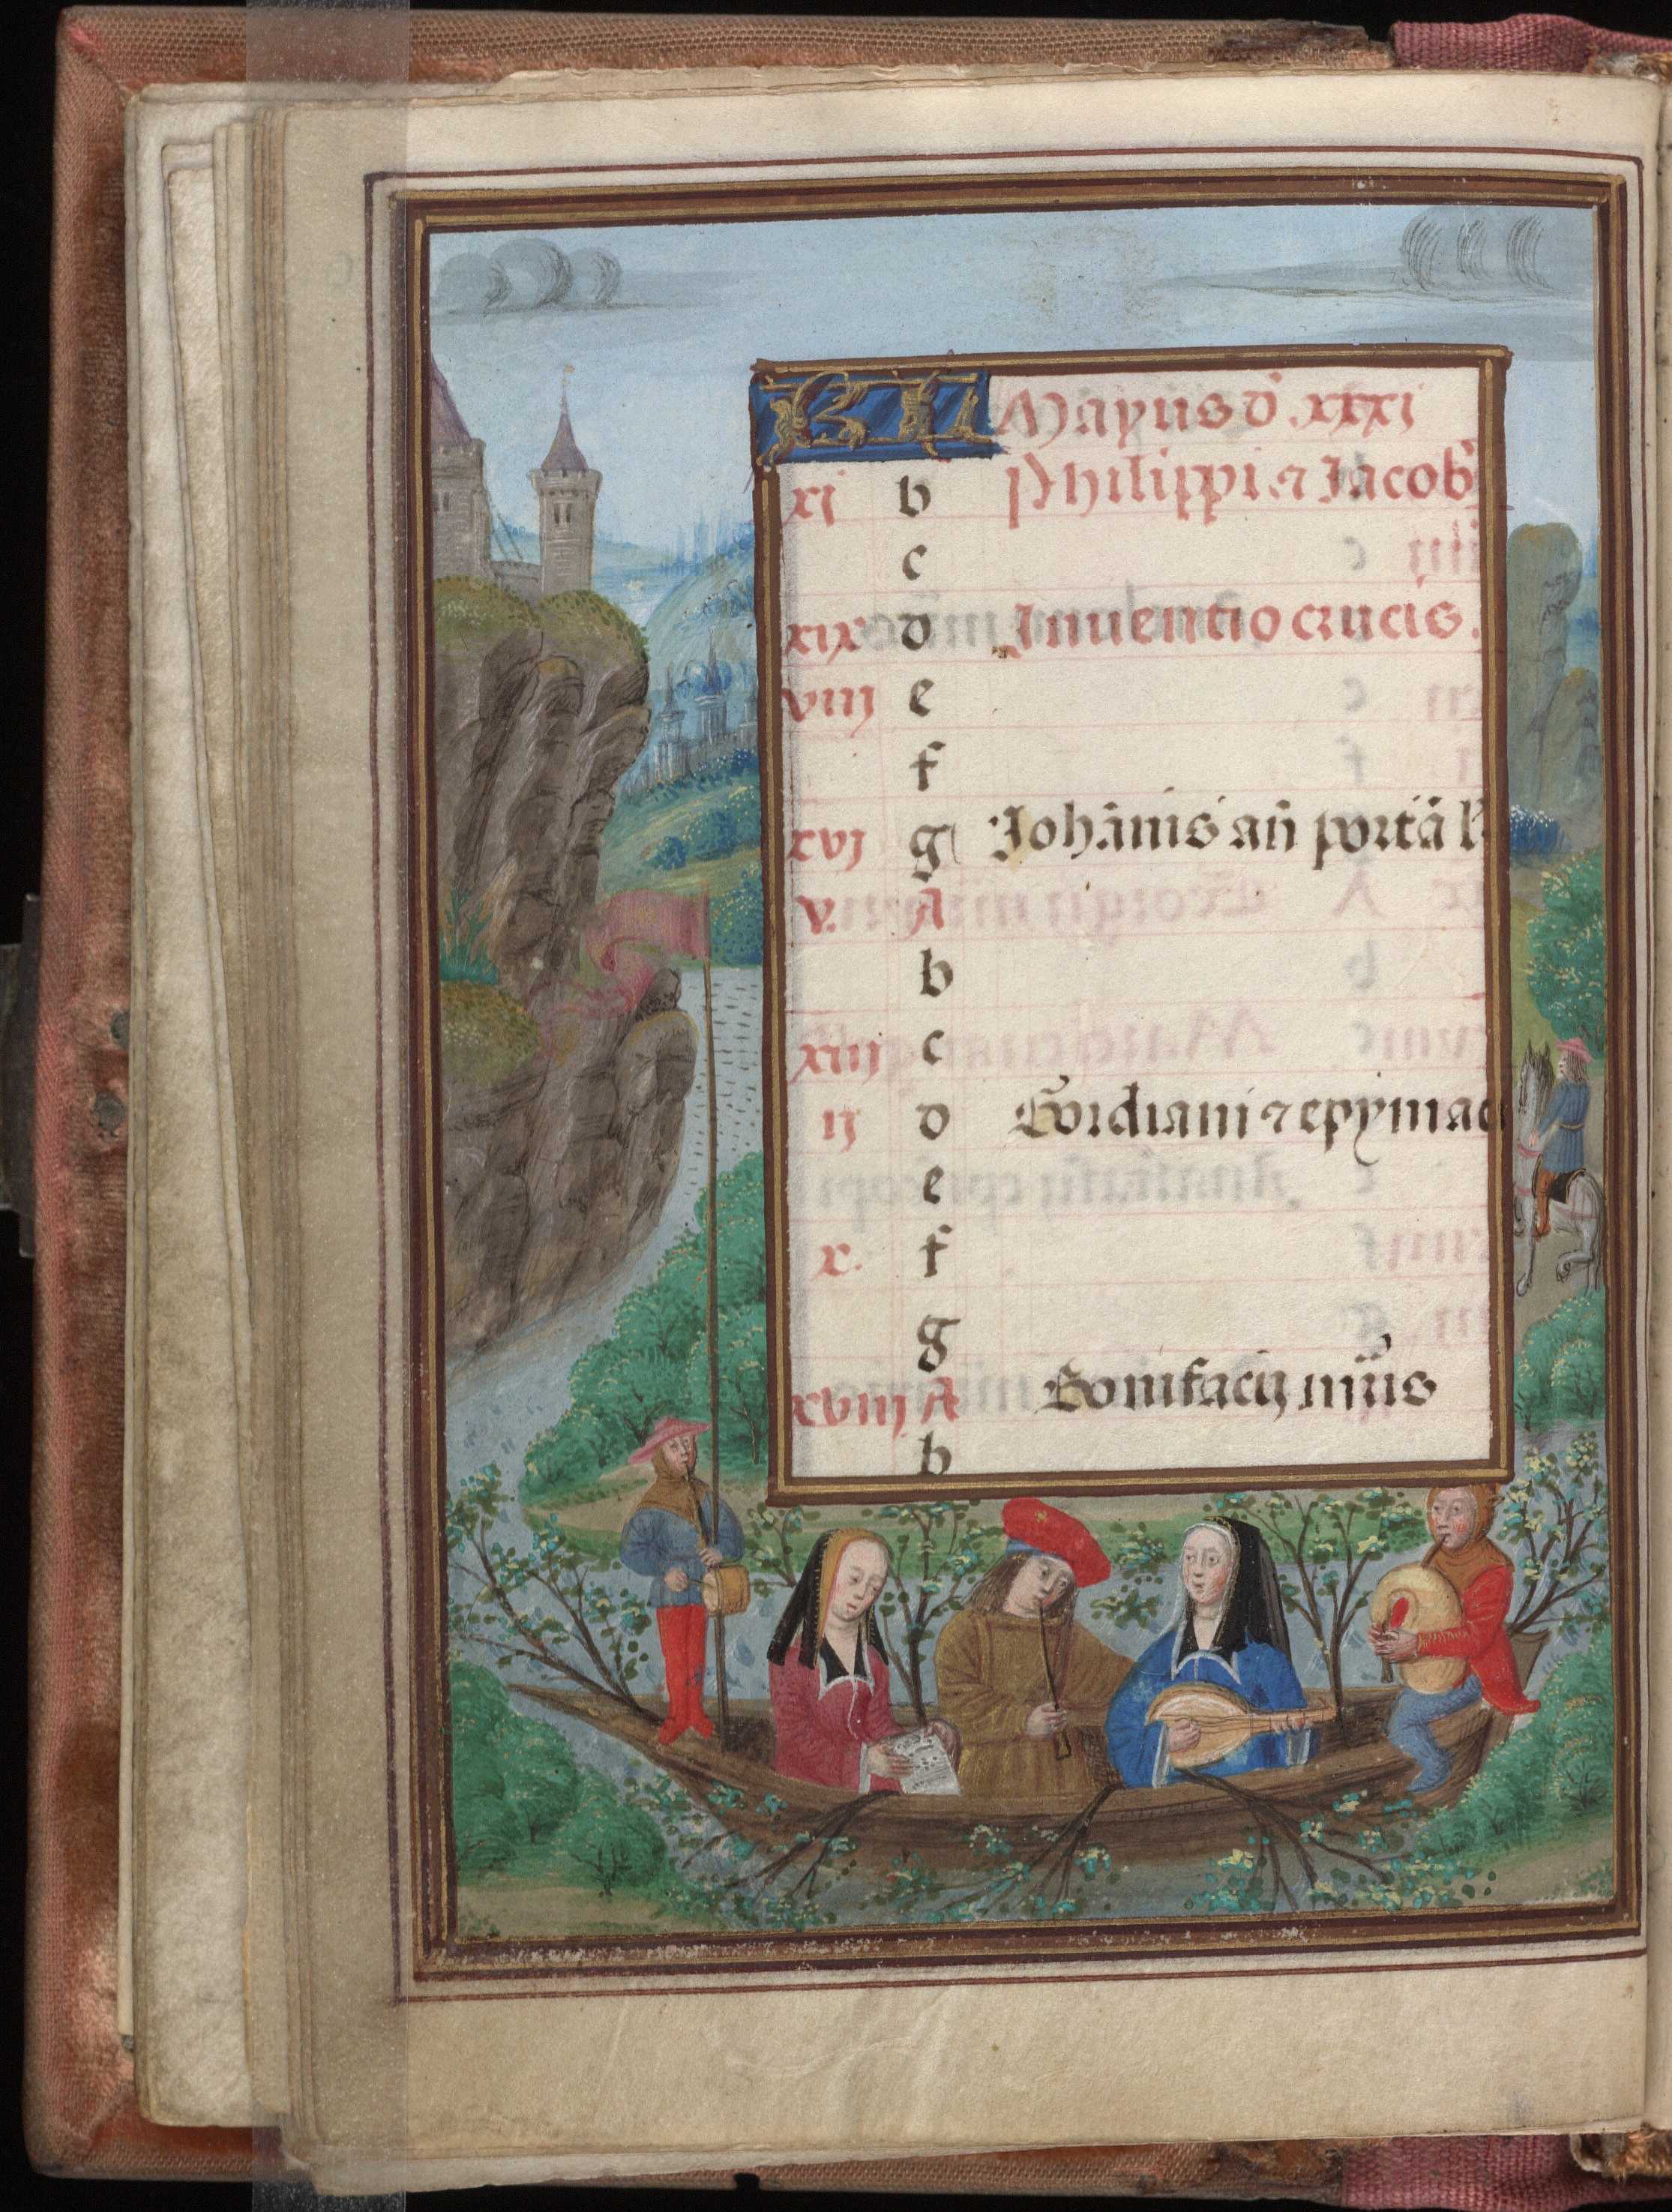 KL Mayus d. xxxj
xj b Philippi ⁊ Jacob
c
xix d Inuentio crucis.
viij e
f
xvj g Johānis an̄ portā l
v. A
b
xiij c
ij d Gordiani ⁊ epymac
e
x. f
g
xviij A Bonifacij mr̄is
b